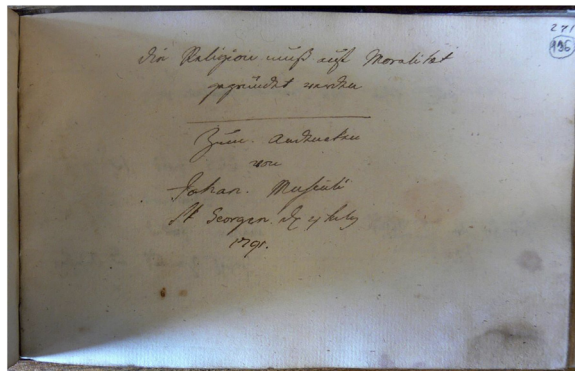 271
136
die Religion muß auf Moralitæt
gegründet werden
Zum Andencken
von
Johan.
St Georgen
1791.